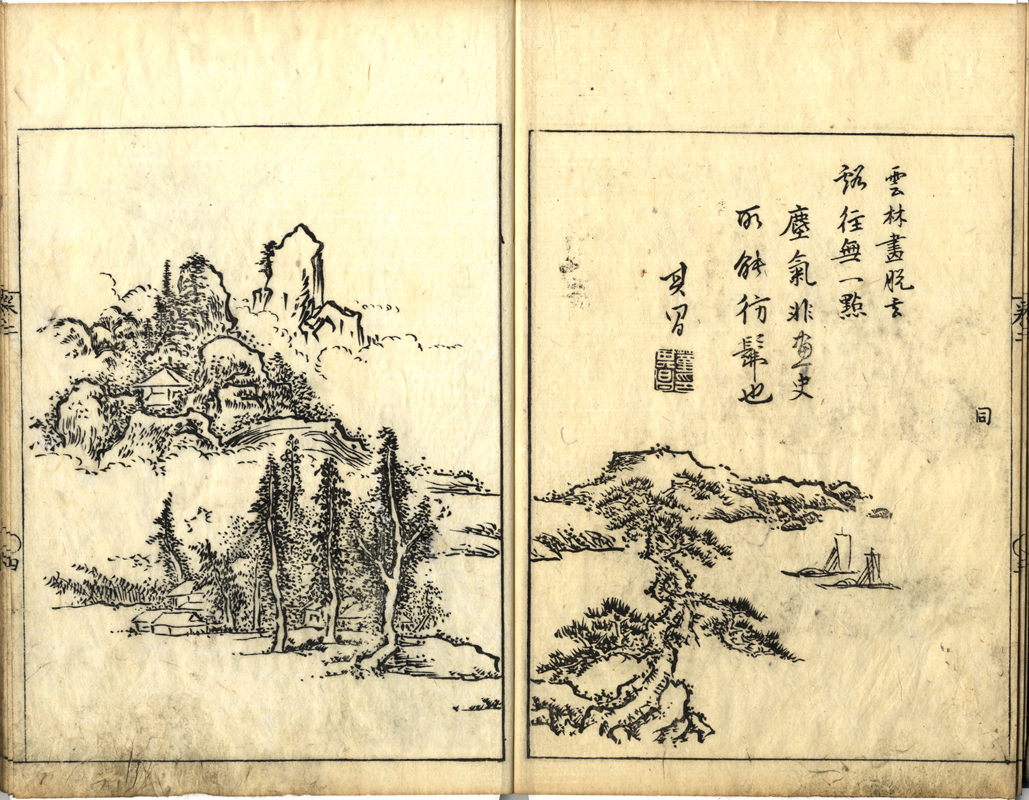 同
雲林畫脫去
谿徑無一點
塵氣非畫史
所能彷髴也
其昌